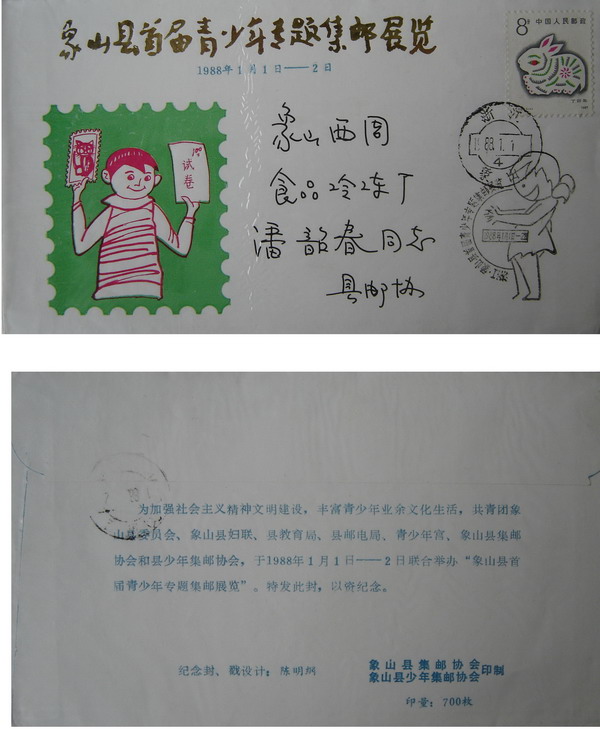 象山县首届青少年专题集邮展览
1988年1月1日——2日
8分 中国人民邮政
试卷
浙江
88.1.1
4
象山西周
食品冷冻厂
潘韶春同志
县邮协
为加强社会主义精神文明建设，丰富青少年业余文化生活，共青团象
山县委员会、象山县妇联、县教育局、县邮电局、青少年宫、象山县集邮
协会和县少年集邮协会，于1988年1月1日——2日联合举办“象山县首
届青少年专题集邮展览”。特发此封，以资纪念。
纪念封、戳设计：陈明纲
象山县集邮协会
象山县少年集邮协会 印制
印量：700枚